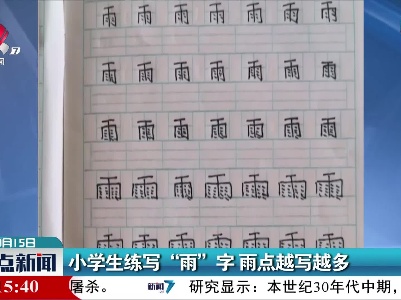 7
闻
雨 雨 雨 雨 雨 雨 雨
雨 雨 雨 雨 雨 雨 雨
雨 雨 雨 雨 雨 雨 雨
雨 雨 雨 雨 雨 雨 雨
雨 雨 雨 雨 雨 雨 雨
月15日
点新闻
小学生练写“雨”字 雨点越写越多
15:40
屠杀。 新闻7 研究显示：本世纪30年代中期，